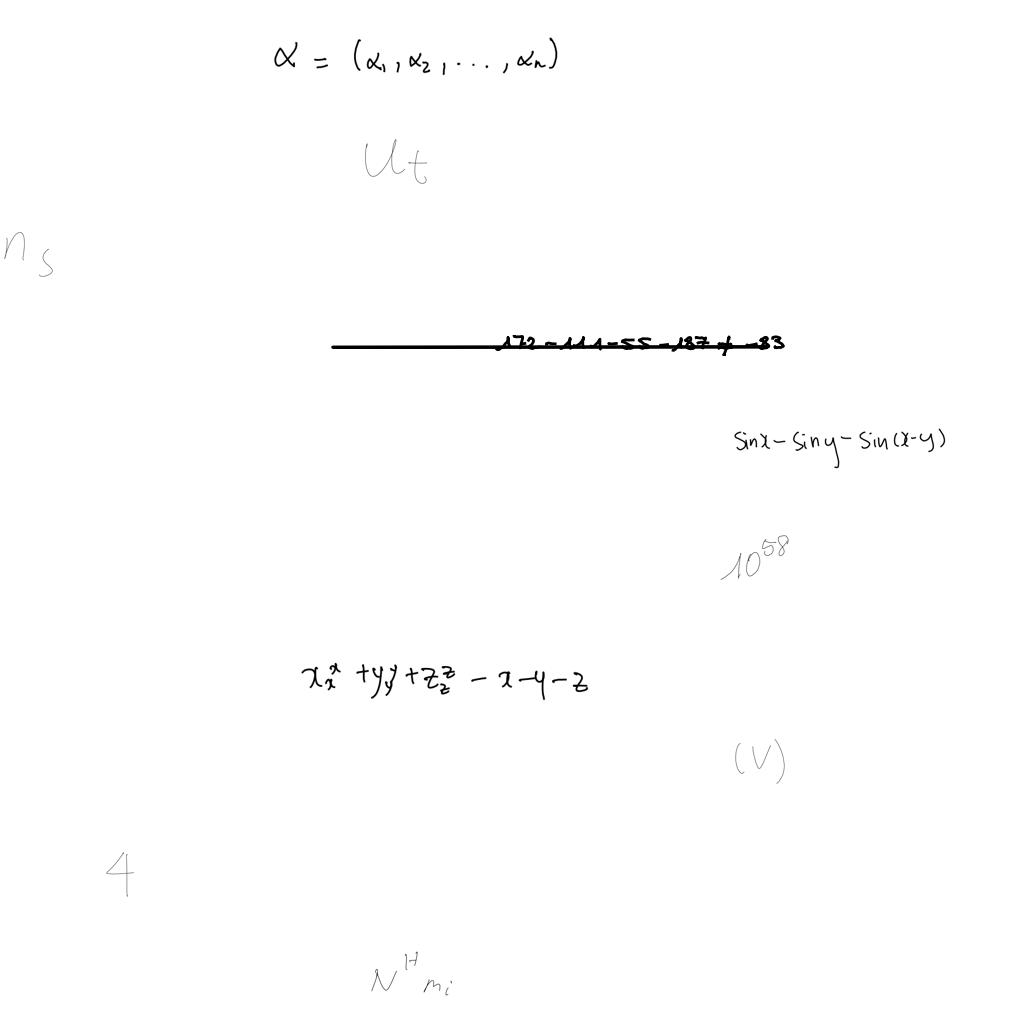 α = (α₁, α₂, ..., αₙ)
U_t
n_s
172 - 111 - 55 - 187 ≠ -83
sinx - siny - sin(x-y)
10^58
x_x^x + y_y^y + z_z^z - x - y - z
(V)
4
N^H_mi